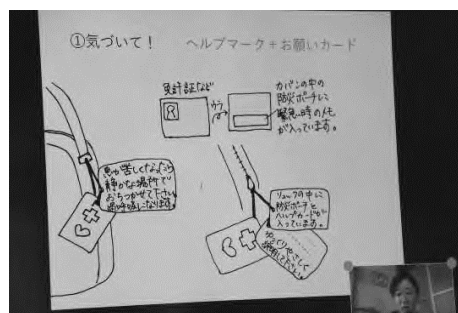 ①気づいて！ ヘルプマーク+お願いカード
免許証など
ウラ
カバンの中の
防災ポーチに
緊急時のメモ
が入っています。
息が苦しくなったら
静かな場所で
おちつかせて下さい
リュックの中に
防災ポーチと
ヘルプカードが
入っています。
ゆっくりやさしく